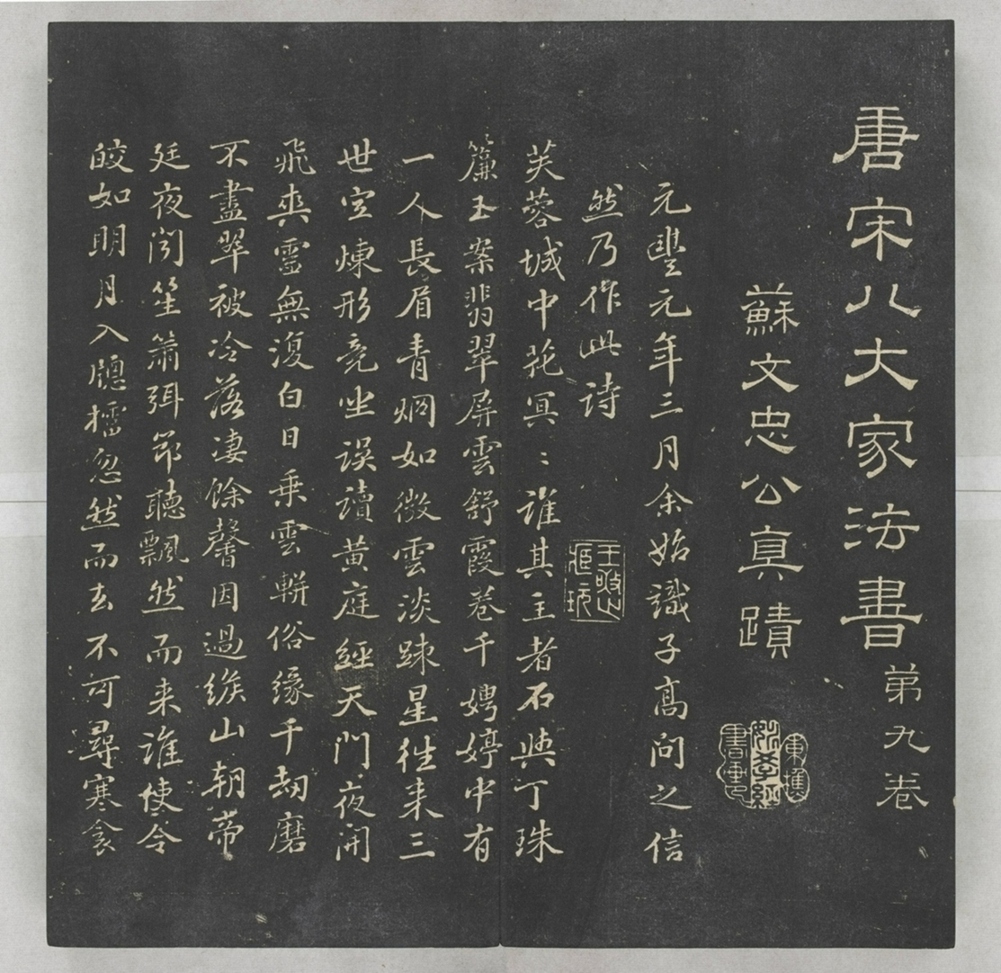 唐宋八大家法書
第九卷
蘇文忠公真蹟
元豐元年三月余始識子高問之信
然乃作此詩
芙蓉城中花冥〻誰其主者石與丁珠
簾玉案翡翠屏雲舒霞卷千娉婷中有
一人長眉青烱如微雲淡踈星徃来三
世空煉形竞坐誤讀黄庭經天門夜開
飛爽靈無復白日乗雲軿俗緣千劫磨
不盡翠被冷落凄餘馨因過緱山朝帝
廷夜聞笙簫弭節聽飄然而来誰使令
皎如明月入牕櫺忽然而去不可尋寒衾